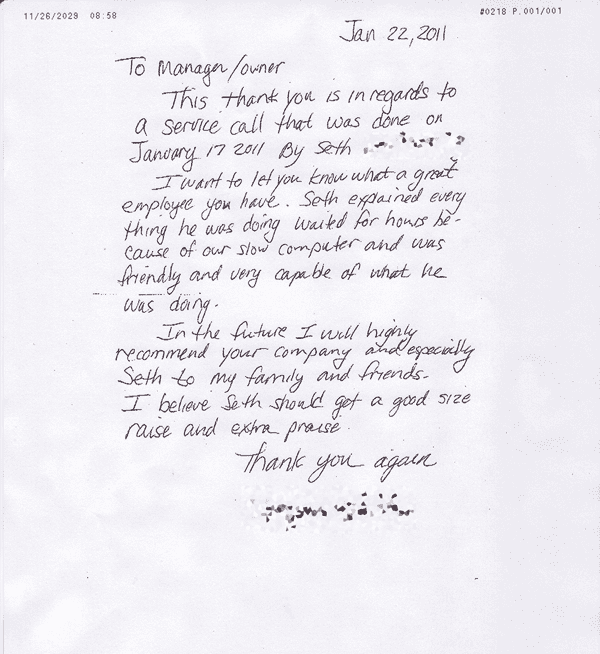 11/26/2029 08:58 #0218 P.001/001
Jan 22, 2011
To Manager/owner
This thank you is in regards to
a service call that was done on
January 17 2011 By Seth
I want to let you know what a great
employee you have. Seth explained every
thing he was doing waited for hours be-
cause of our slow computer and was
friendly and very capable of what he
was doing.
In the future I will highly
recommend your company and especially
Seth to my family and friends.
I believe Seth should get a good size
raise and extra praise.
Thank you again